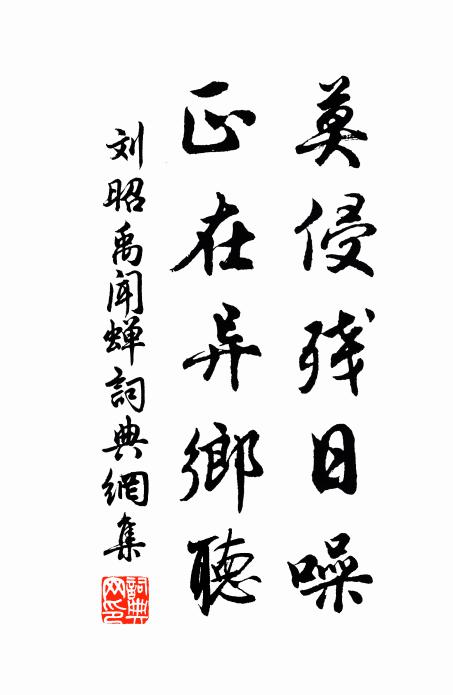 莫侵残日噪
正在异鄉聽
刘昭禹闻蝉詞典網集
詞典网印